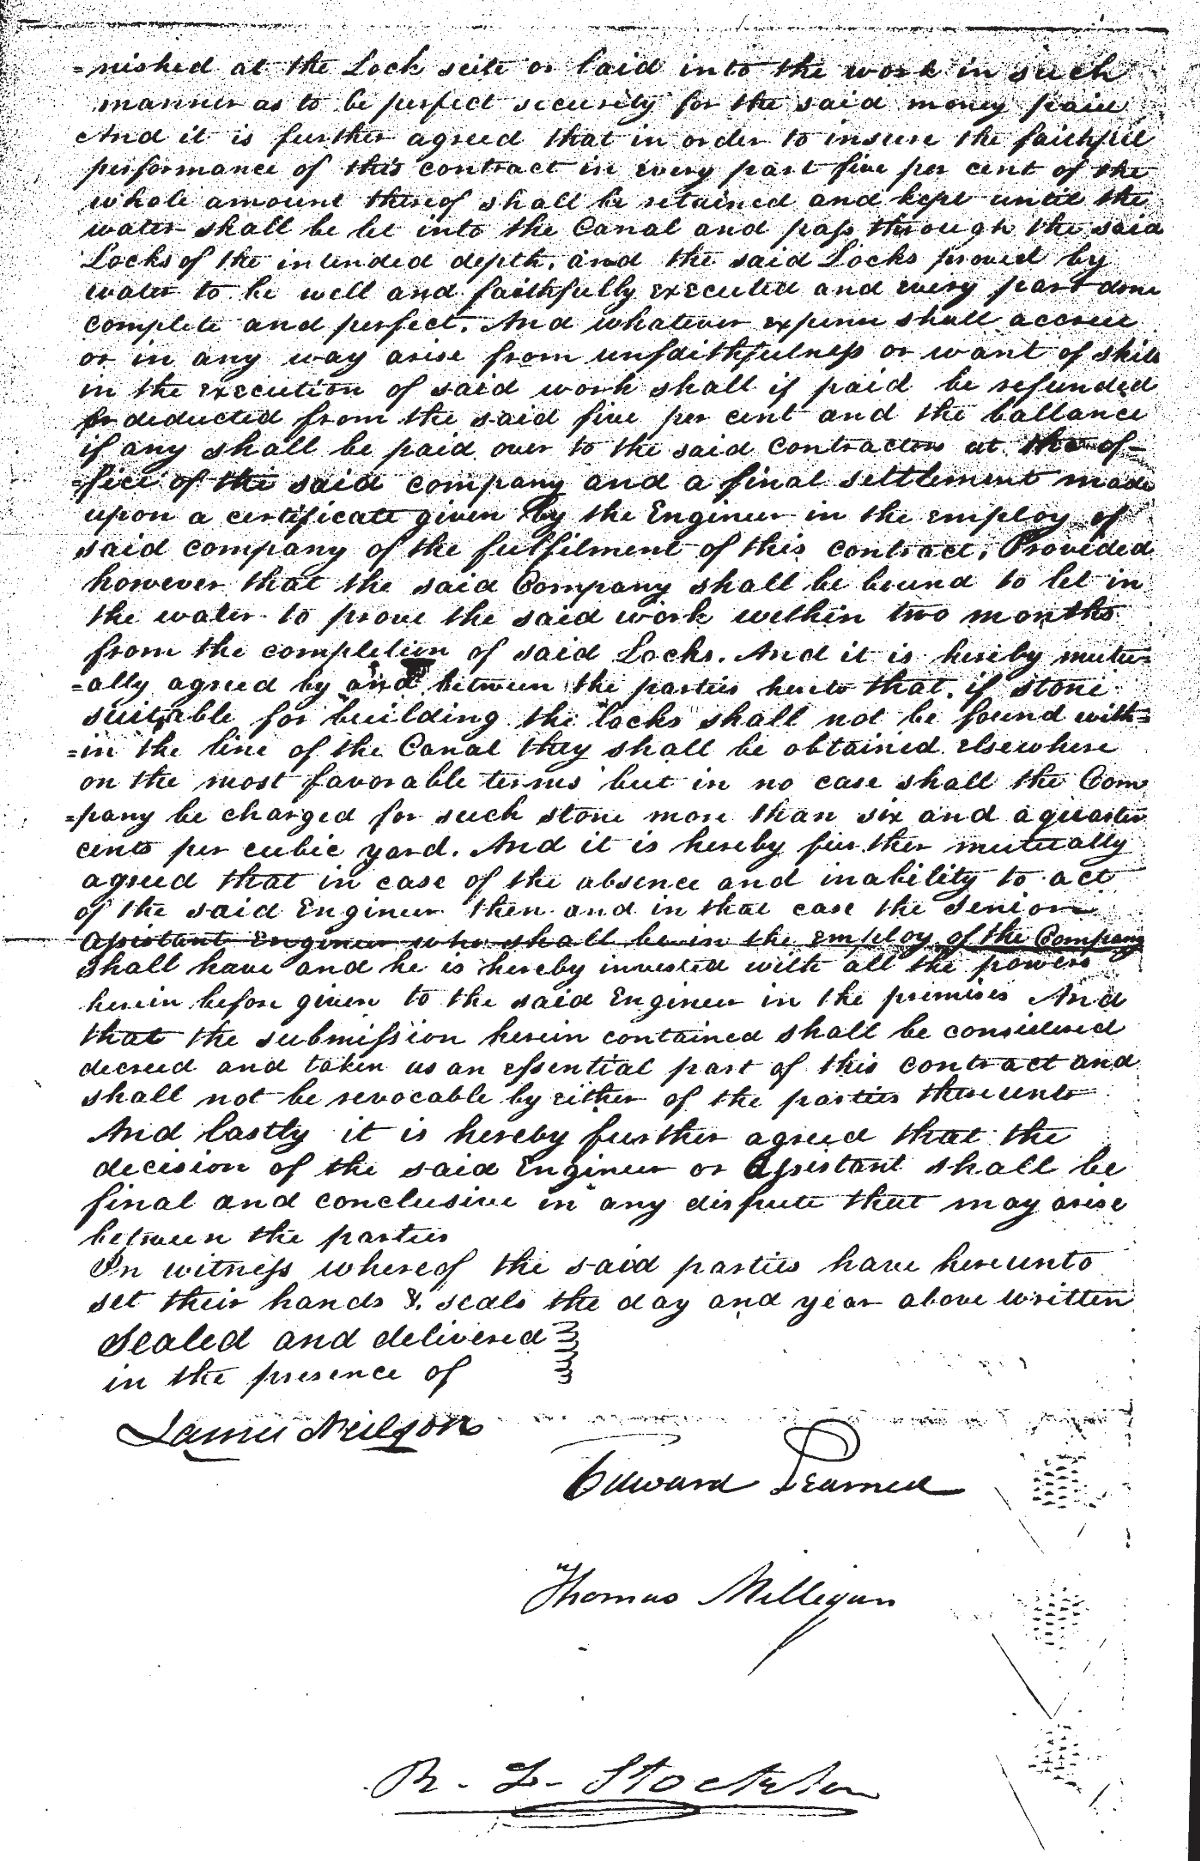 =nished at the Lock seite or laid into the work in such
manner as to be perfect security for the said money paid
And it is further agreed that in order to insure the faithful
performance of this contract in every part five per cent of the
whole amount thereof shall be retained and kept until the
water shall be let into the Canal and pass through the said
Locks of the intended depth, and the said Locks proved by
water to be well and faithfully executed and every part done
complete and perfect. And whatever expense shall accrue
or in any way arise from unfaithfulness or want of skill
in the execution of said work shall if paid be refunded
or deducted from the said five per cent and the ballance
if any shall be paid over to the said contractors at the of=
=fice of the said company and a final settlement made
upon a certificate given by the Engineer in the employ of
said company of the fulfilment of this contract. Provided
however that the said Company shall be bound to let in
the water to prove the said work within two months
from the completion of said Locks. And it is hereby mutu=
=ally agreed by and between the parties hereto that, if stone
suitable for building the locks shall not be found with=
=in the line of the Canal they shall be obtained elsewhere
on the most favorable terms but in no case shall the Com
=pany be charged for such stone more than six and a quarter
cents per cubic yard. And it is hereby further mutually
agreed that in case of the absence and inability to act
of the said Engineer then and in that case the senior
Assistant Engineer who shall be in the employ of the Company
shall have and he is hereby invested with all the powers
herein before given to the said Engineer in the premises And
that the submission herein contained shall be considered
decreed and taken as an essential part of this contract and
shall not be revocable by either of the parties thereunto
And lastly it is hereby further agreed that the
decision of the said Engineer or Assistant shall be
final and conclusive in any dispute that may arise
between the parties
In witness whereof the said parties have hereunto
set their hands & seals the day and year above written
Sealed and delivered
in the presence of
James Neilson
Edward Learned
Thomas Milligan
R. F. Stockton